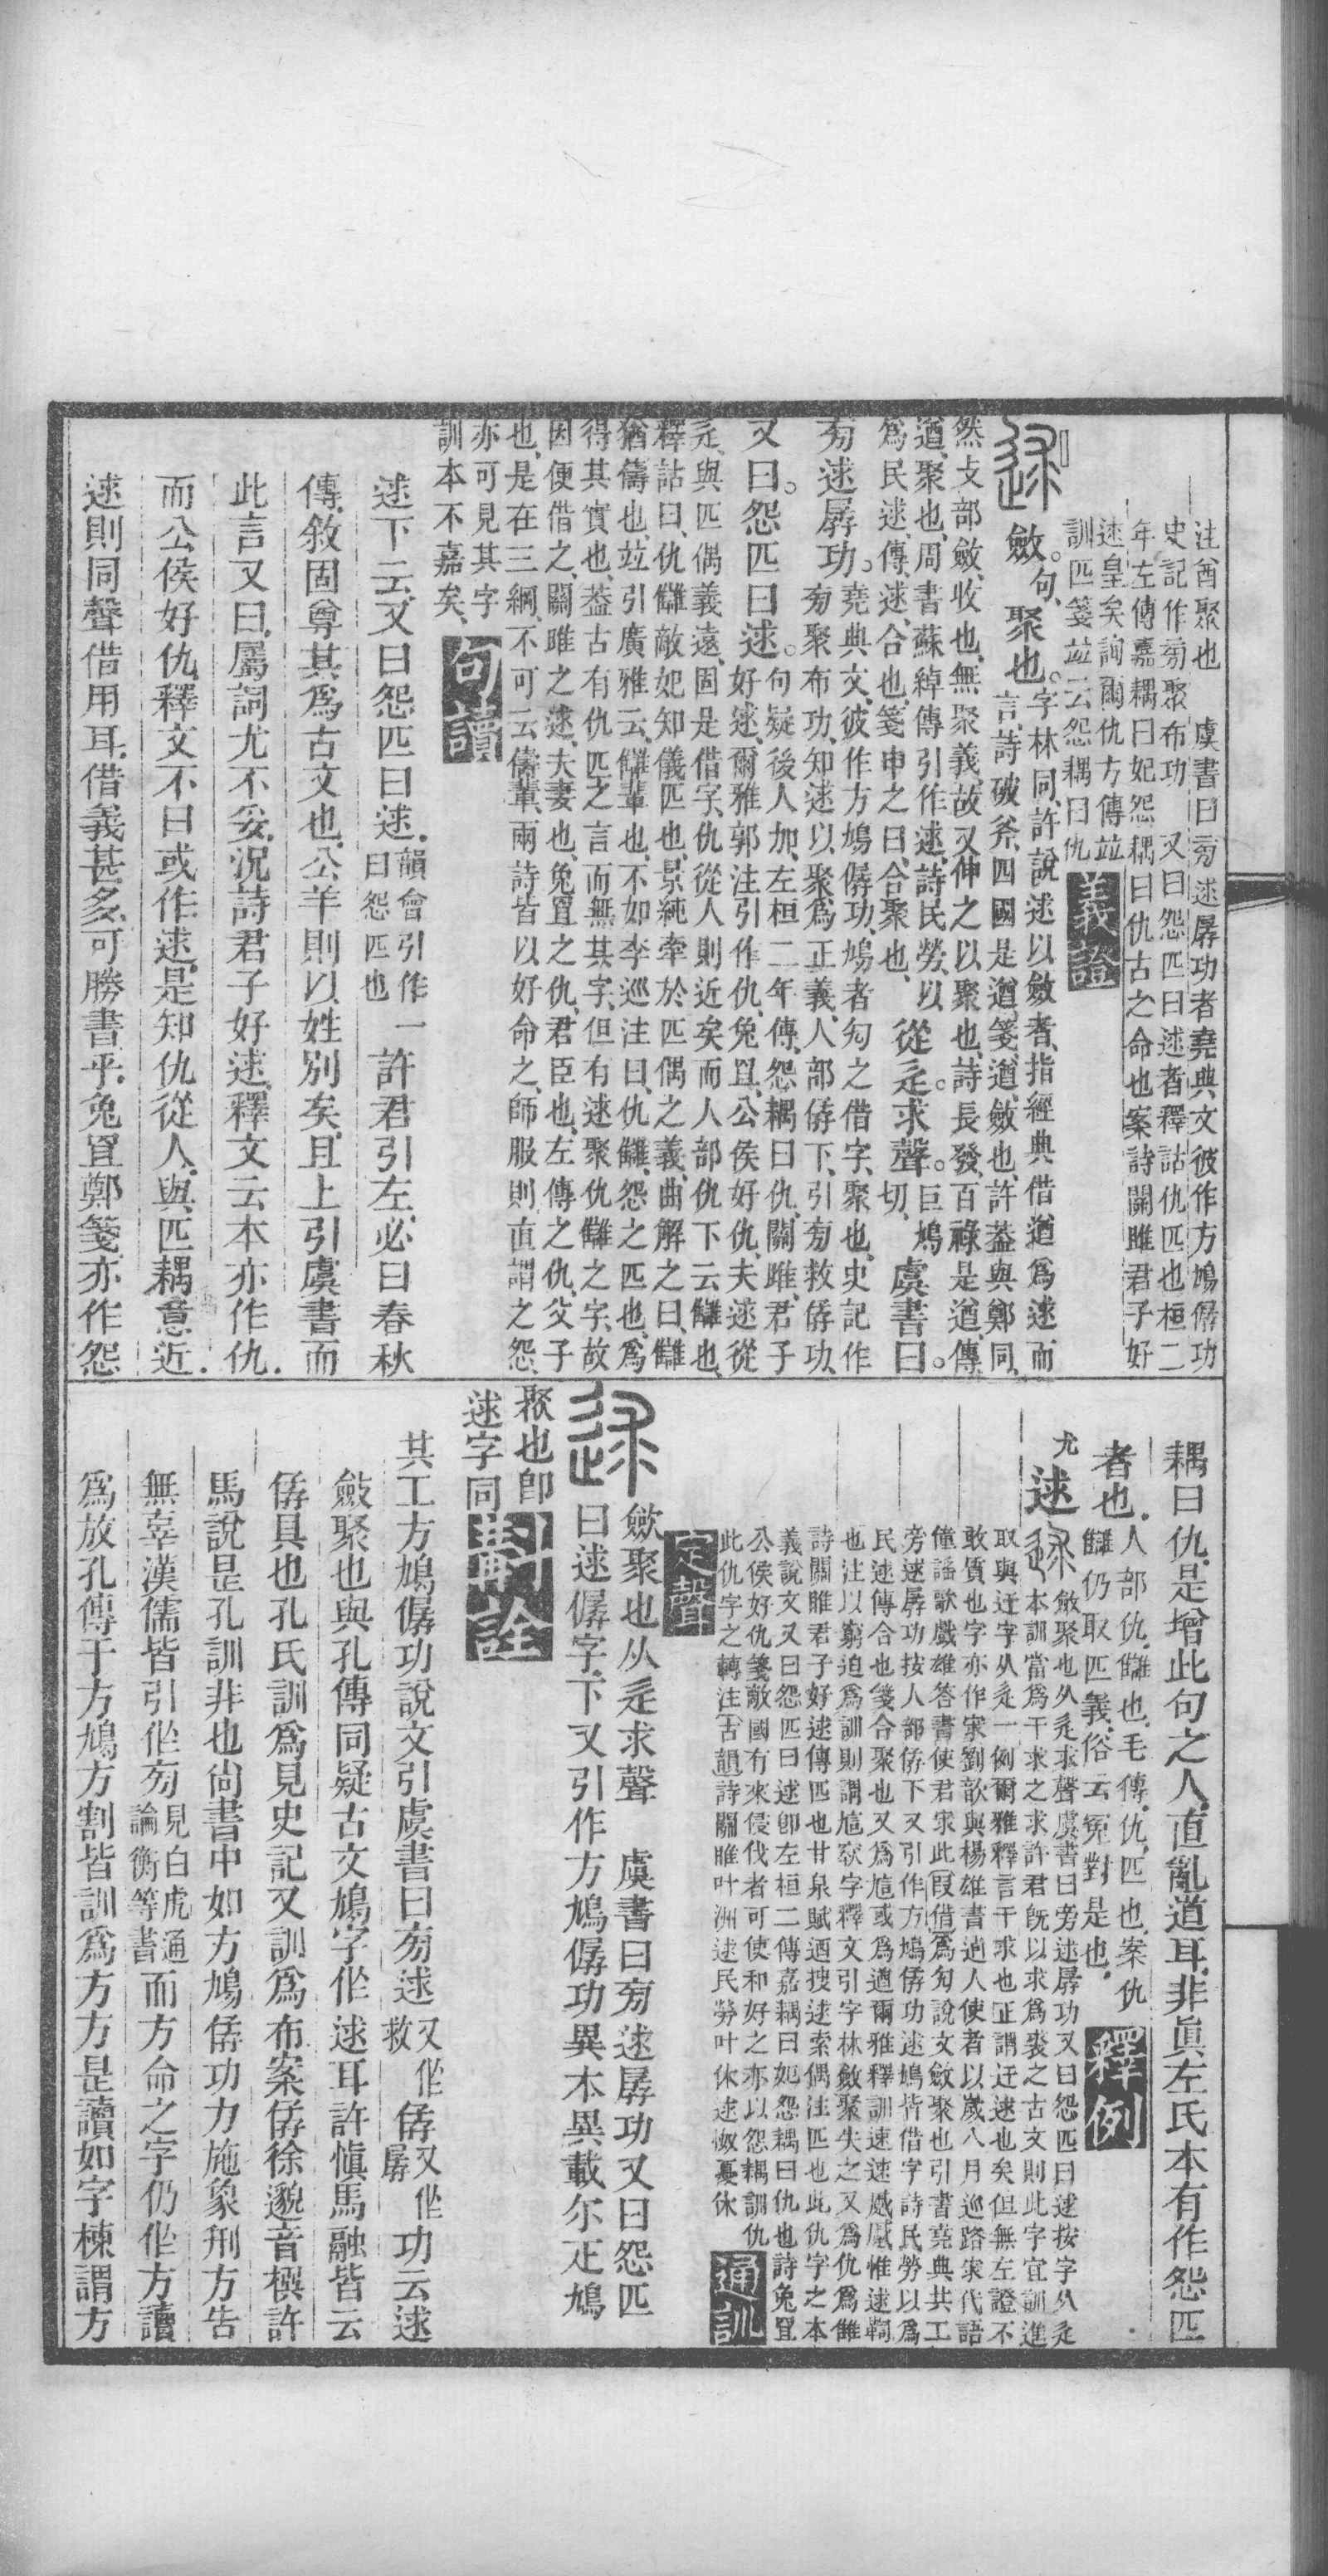 注酋聚也　虞書曰㫄逑孱功者堯典文彼作方鳩僝功
史記作㫄聚布功　又曰怨匹曰逑者釋詁仇匹也桓二
年左傳嘉耦曰妃怨耦曰仇古之命也案詩關雎君子好
逑皇矣詢爾仇方傳竝
訓匹箋竝云怨耦曰仇
義證
斂。句、聚也。字林同、許說逑以斂者、指經典借遒爲逑而
言、詩破斧、四國是遒、箋、遒、斂也、許葢與鄭同、
然攴部斂、收也、無聚義、故又伸之以聚也、詩長發、百祿是遒、傳、
遒、聚也、周書蘇綽傳引作逑、詩民勞、以
爲民逑、傳、逑、合也、箋申之曰、合聚也、
從辵。求聲。巨鳩切、虞書曰。
㫄逑孱功。堯典文、彼作方鳩僝功、鳩者勼之借字、聚也、史記作
㫄聚布功、知逑以聚爲正義、人部僝下、引㫄救僝功、
又曰。怨匹曰逑。句疑後人加、左桓二年傳、怨耦曰仇、關雎、君子
好逑、爾雅郭注引作仇、兔罝、公侯好仇、夫逑從
辵、與匹偶義遠、固是借字、仇從人則近矣、而人部仇下云讎也、
釋詁曰、仇讎敵妃知儀匹也、景純牽於匹偶之義、曲解之曰、讎
猶儔也、竝引廣雅云、讎輩也、不如李巡注曰、仇讎、怨之匹也、爲
得其實也、葢古有仇匹之言而無其字、但有逑聚仇讎之字、故
因便借之、關雎之逑、夫妻也、兔罝之仇、君臣也、左傳之仇、父子
也、是在三綱、不可云儔輩、兩詩皆以好命之、師服則直謂之怨、
亦可見其字
訓本不嘉矣、
句讀
逑下云、又曰怨匹曰逑、韻會引作一曰怨匹也許君引左、必曰春秋
傳、敘固尊其爲古文也、公羊則以姓別矣、且上引虞書而
此言又曰、屬詞尤不妥、況詩君子好逑、釋文云本亦作仇、
而公侯好仇、釋文不曰或作逑、是知仇從人、與匹耦意近、
逑則同聲借用耳、借義甚多、可勝書乎、兔罝鄭箋、亦作怨
耦曰仇、是增此句之人、直亂道耳、非眞左氏本有作怨匹
者也、人部仇、讎也、毛傳、仇、匹也、案仇
讎仍取匹義、俗云冤對是也、
釋例
尤
逑
斂聚也从辵求聲虞書曰旁逑孱功又曰怨匹曰逑按字从辵
本訓當爲干求之求許君旣以求爲裘之古文則此字宜訓進
取與迂字从辵一例爾雅釋言干求也正謂迂逑也矣但無左證不
敢質也字亦作宷劉歆與楊雄書遒人使者以歲八月巡路宷代語
僮謠歌戲雄答書使君宷此叚借爲勼說文斂聚也引書堯典共工
旁逑孱功按人部僝下又引作方鳩僝功逑鳩皆借字詩民勞以爲
民逑傳合也箋合聚也又爲訄或爲遒爾雅釋訓速速蹙蹙惟逑鞫
也注以窮迫爲訓則謂訄㝌字釋文引字林斂聚失之又爲仇爲雔
詩關雎君子好逑傳匹也甘泉賦迺搜逑索偶注匹也此仇字之本
義說文又曰怨匹曰逑卽左桓二傳嘉耦曰妃怨耦曰仇也詩兔罝
公侯好仇箋敵國有來侵伐者可使和好之亦以怨耦訓仇
此仇字之轉注古韻詩關雎叶洲逑民勞叶休逑怓憂休
定聲
通訓
斂聚也从辵求聲　虞書曰㫄逑孱功又曰怨匹
曰逑僝字下又引作方鳩僝功異本異載尒疋鳩
聚也卽
逑字同
斠詮
共工方鳩僝功說文引虞書曰㫄逑又作救僝又作孱功云逑
斂聚也與孔傳同疑古文鳩字作逑耳許愼馬融皆云
僝具也孔氏訓爲見史記又訓爲布案僝徐邈音撰許
馬說是孔訓非也尙書中如方鳩僝功方施象刑方告
無辜漢儒皆引作㫄見白虎通論衡等書而方命之字仍作方讀
爲放孔傳于方鳩方割皆訓爲方方是讀如字棟謂方